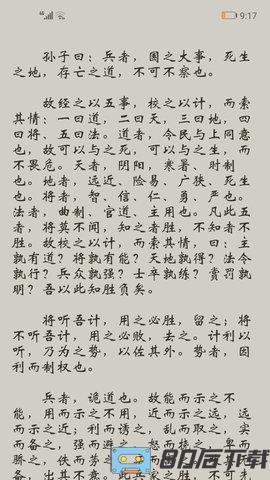 9:17
孙子曰：兵者，国之大事，死生
之地，存亡之道，不可不察也。
故经之以五事，校之以计，而索
其情：一曰道，二曰天，三曰地，四
曰将、五曰法。道者，令民与上同意
也，故可以与之死，可以与之生，而
不畏危。天者，阴阳，寒暑、时制
也。地者，远近、险易、广狭、死生
也。将者，智、信、仁、勇、严也。
法者，曲制、官道、主用也。凡此五
者，将莫不闻，知之者胜，不知者不
胜。故校之以计，而索其情，曰：主
孰有道？将孰有能？天地孰得？法令
孰行？兵众孰强？士卒孰练？赏罚孰
明？吾以此知胜负矣。
将听吾计，用之必胜，留之；将
不听吾计，用之必败，去之。计利以
听，乃为之势，以佐其外。势者，因
利而制权也。
兵者，诡道也。故能而示之不
能，用而示之不用，近而示之远，远
而示之近；利而诱之，乱而取之，实
而备之，强而避之，怒而挠之，卑而
骄之，佚而劳之，
备，出其不意。此兵家之胜，不可先
80后下载